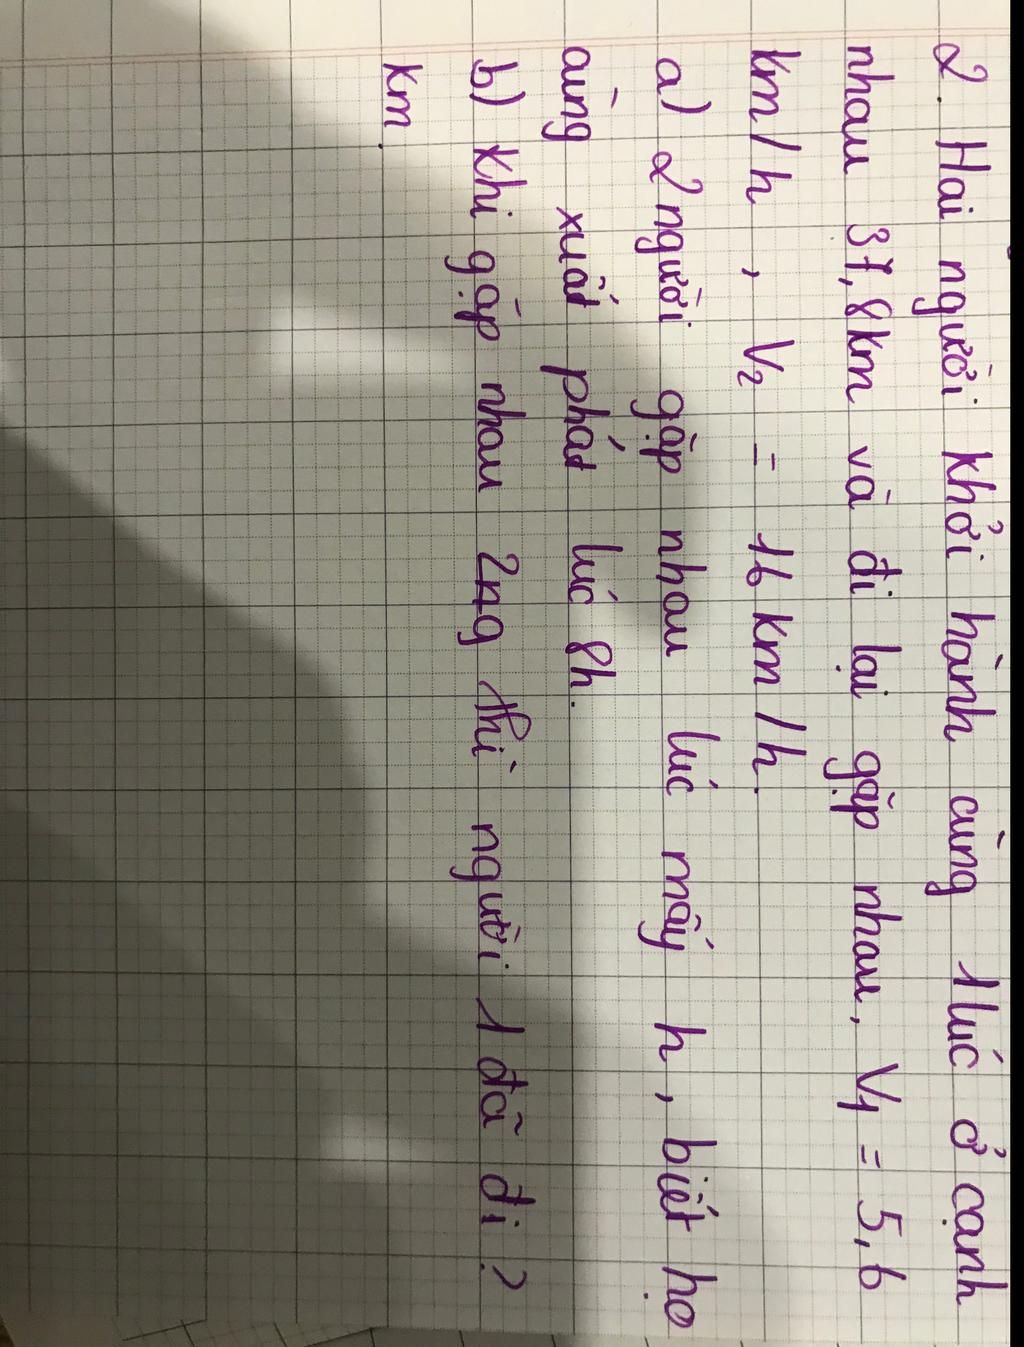 2. Hai người khởi hành cùng 1 lúc ở cạnh
nhau 37,8km và đi lại gặp nhau, V1 = 5,6
km/h, V2 = 16 km/h.
a) 2 người gặp nhau lúc mấy h, biết họ
cùng xuất phát lúc 8h.
b) Khi gặp nhau 2ng thì người 1 đã đi ?
km.